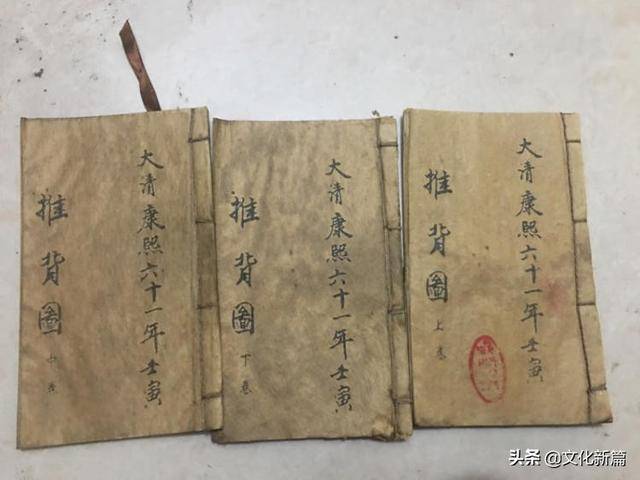 大清康熙六十一年壬寅
推背圖
上卷
大清康熙六十一年壬寅
推背圖
下卷
大清康熙六十一年壬寅
推背圖
中卷
头条 @文化新篇